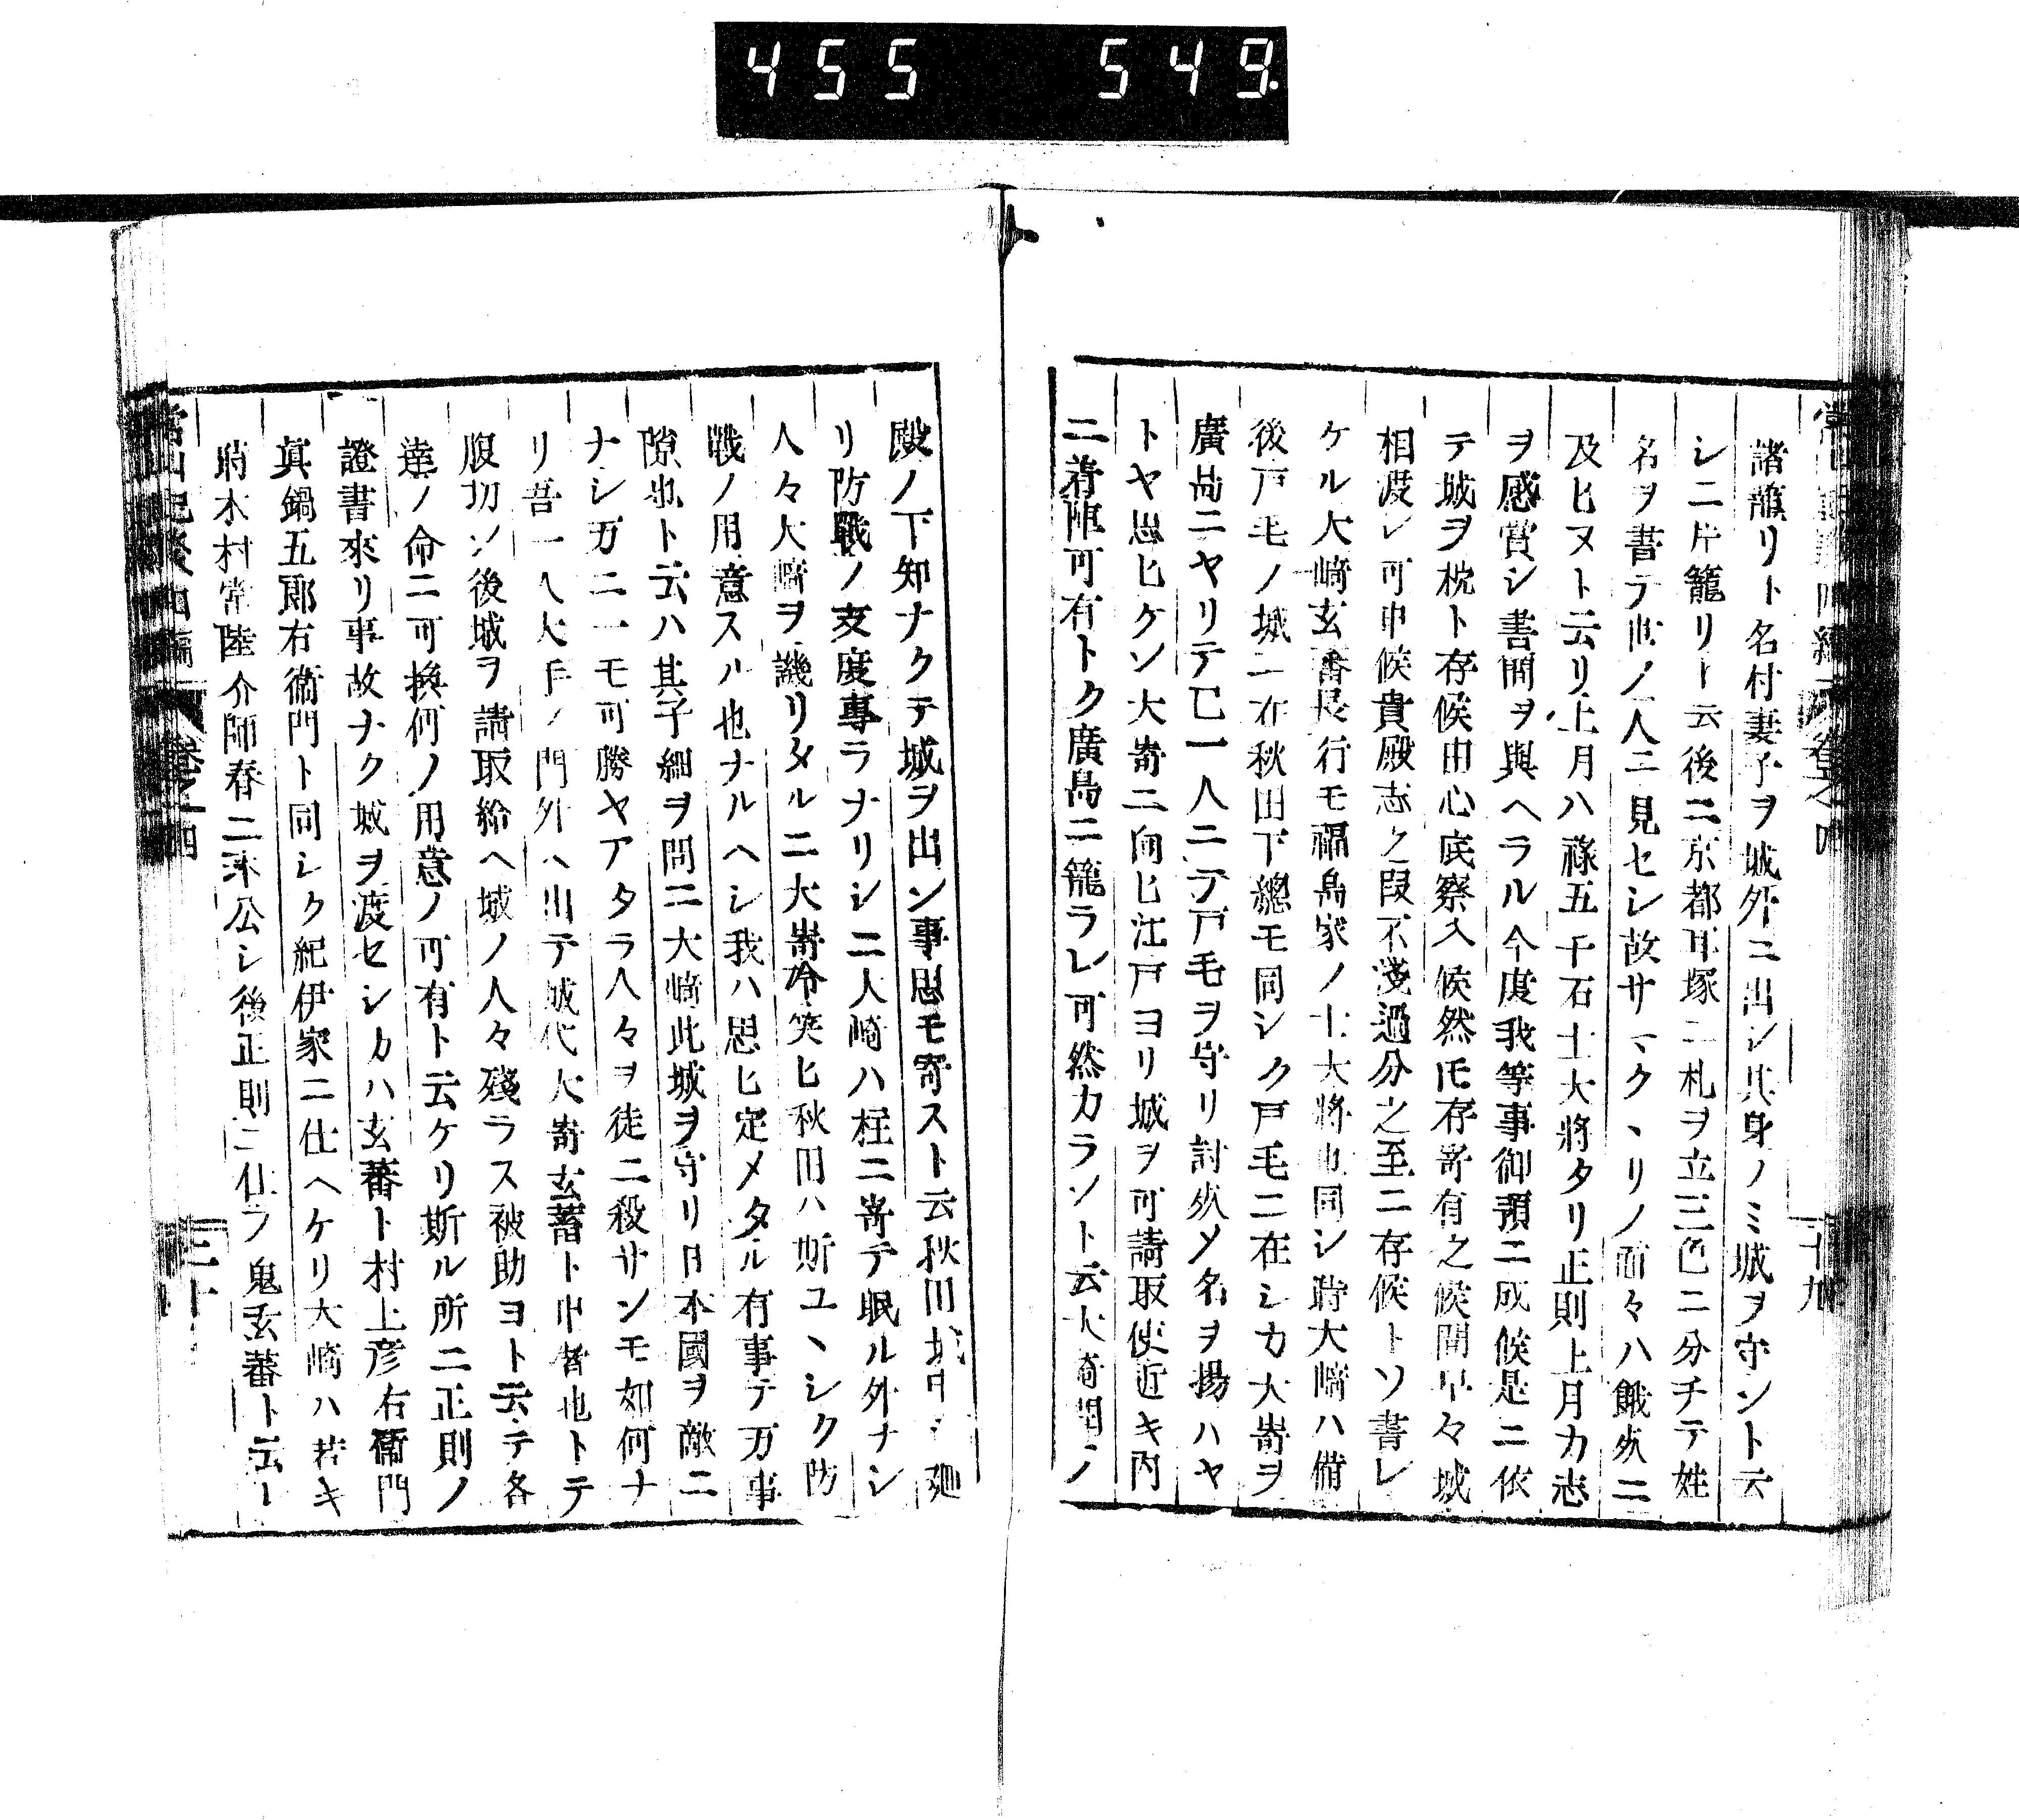 455 549
諸籠リト名村妻子ヲ城外ニ出シ其身ノミ城ヲ守ント云
シニ片籠リト云後ニ京都耳塚ニ札ヲ立三色ニ分チテ姓
名ヲ書テ世ノ人ニ見セシ故サマクヽリノ面々ハ餓死ニ
及ヒヌト云リ上月ハ祿五千石士大將タリ正則上月カ志
ヲ感賞シ書簡ヲ與ヘラル今度我等事御預ニ成候是ニ依
テ城ヲ枕ト存候由心底察入候然モ存寄有之候間早々城
相渡シ可申候貴殿志之段不淺過分之至ニ存候トソ書レ
ケル大崎玄蕃長行モ福島家ノ士大將也同シ時大崎ハ備
後戸毛ノ城ニ在秋田下總モ同シク戸毛ニ在シカ大嵜ヲ
廣島ニヤリテ已一人ニテ戸毛ヲ守リ討死メ名ヲ揚ハヤ
トヤ思ヒケン大嵜ニ向ヒ江戸ヨリ城ヲ可請取使近キ内
ニ着陣可有トク廣島ニ籠ラレ可然カラント云大崎聞ノ
殿ノ下知ナクテ城ヲ出ン事思モ寄ストト云秋田城中ヲ廻
リ防戰ノ支度專ラナリシニ大崎ハ柱ニ嵜テ眠ル外ナシ
人々大崎ヲ譏リタルニ大嵜冷笑ヒ秋田ハ斯ユヽシク防
戰ノ用意スル也ナルヘシ我ハ思ヒ定メタル有事テ万事
隙也ト云ハ其子細ヲ問ニ大崎此城ヲ守リ日本國ヲ敵ニ
ナシ万ニ一モ可勝ヤアタラ人々ヲ徒ニ殺サンモ如何ナ
リ吾一人大手ノ門外ヘ出テ城代大嵜玄蕃ト申者也トテ
腹切ン後城ヲ請取給ヘ城ノ人々殘ラス被助ヨト云テ各
達ノ命ニ可換何ノ用意ノ可有ト云ケリ斯ル所ニ正則ノ
證書來リ事故ナク城ヲ渡セシカハ玄蕃ト村上彦右衞門
真鍋五郎右衞門ト同シク紀伊家ニ仕ヘケリ大崎ハ若キ
時木村常陸介師春ニ奉公シ後正則ニ仕ラ鬼玄蕃ト云ー
常山紀談四編 卷之四 三十